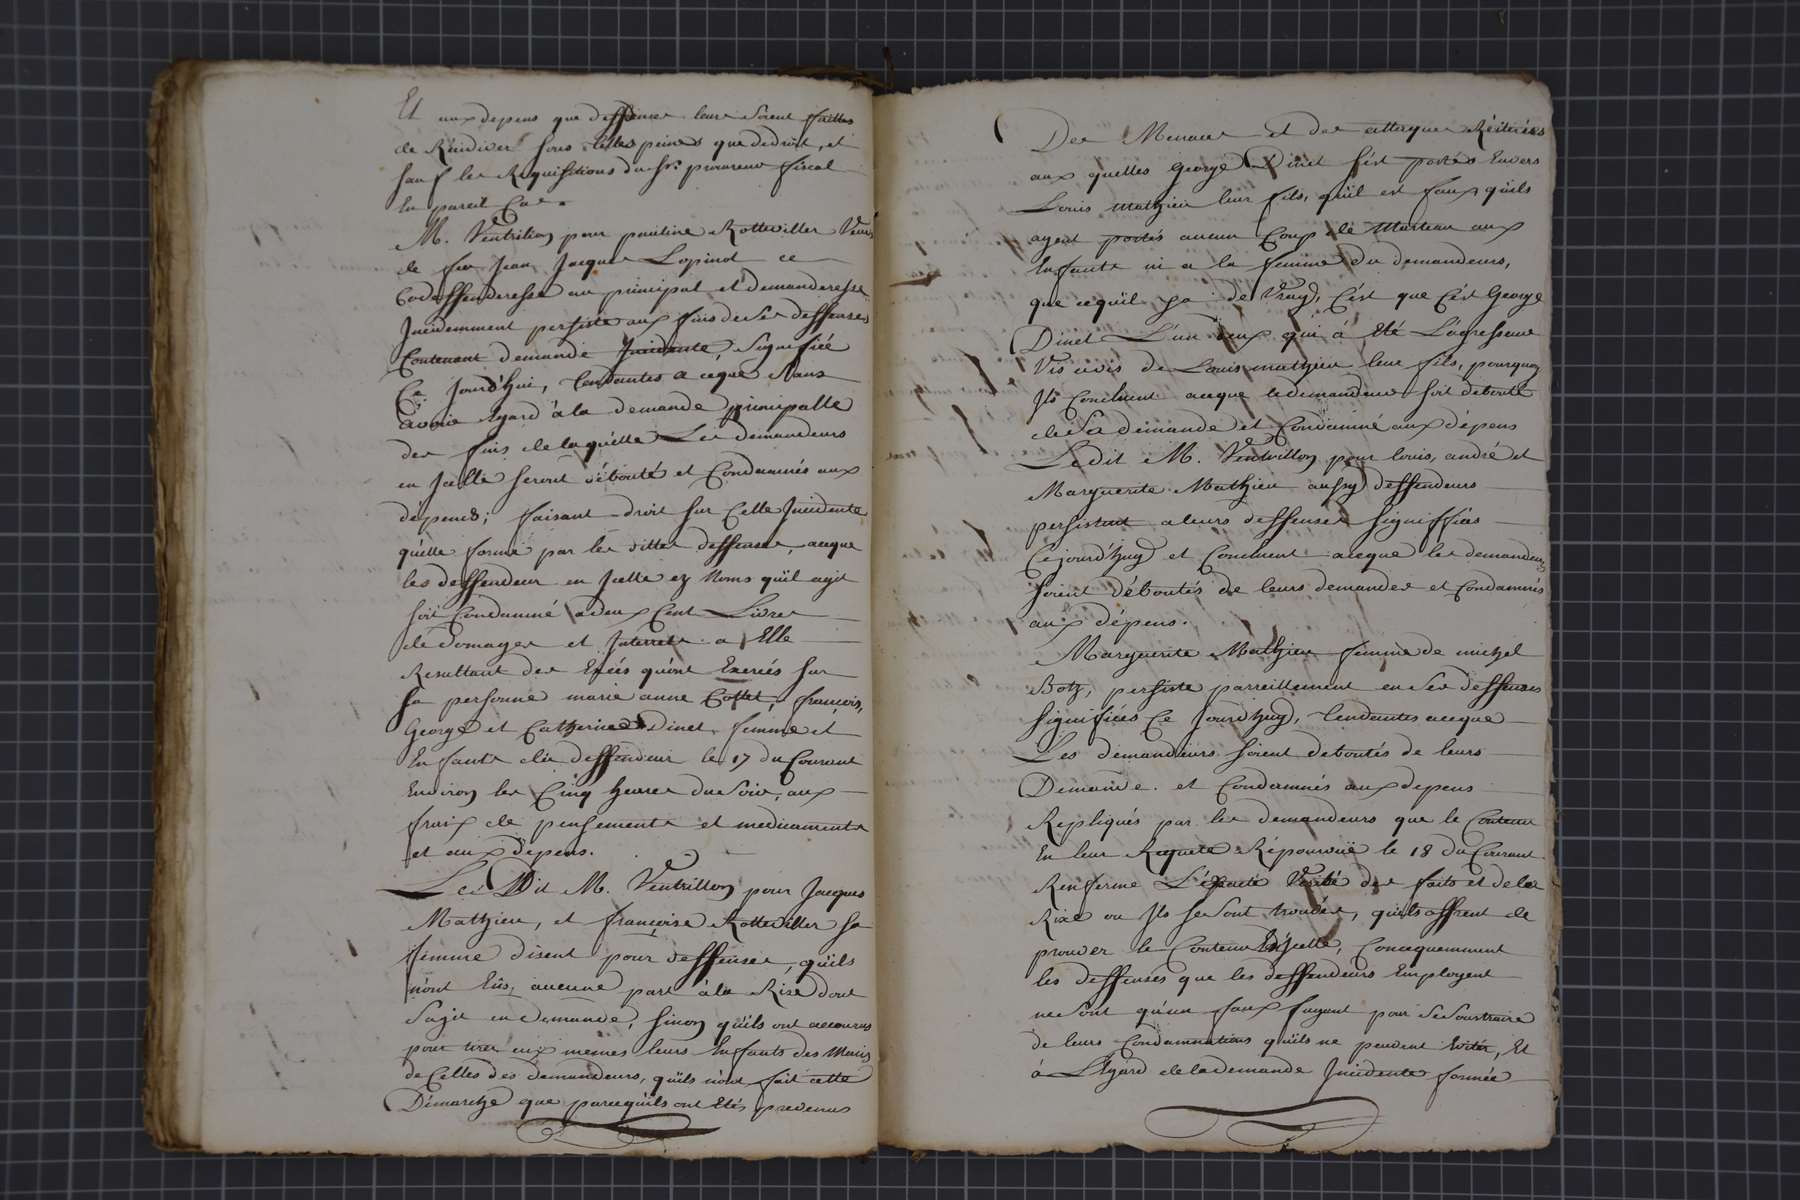 Et aux depens que deffenses leurs soient faittes
de Récidiver sous telles peines que de droit, et
sauf les Requisitions du Sr. procureur fiscal
En pareil Cas.
M. Ventrillon pour pauline Rotteviller Veuve
de feu Jean Jacques Lopinot ce
Codeffenderesse au principal et demanderesse
Incidemment persiste aux fins de ses deffenses
Contenant demande Incidente, signifiée
Ce Jourd'hui, tendantes a ceque sans
avoir Egard à la demande principalle
des fins de laquelle Les demandeurs
en Icelle seront débouté et Condamnés aux
dépends; faisant droit sur Cette Incidente
quelle forme par les dittes deffenses, aceque
les deffendeur en Icelle ez Noms quïl agit
soit Condamné a deux Cent Livres
de domages et Interrets a Elle
Resultant des Excés qu'ont Exercés sur
sa personne marie anne Collet, françois,
George et Catherine Dinet femme et
Enfants du deffendeur le 17 du Courant
Environ les Cinq heures du Soir, aux
fraix de pensements et medicaments
et aux dépens.
Le Dit M. Ventrillon pour Jacques
Mathieu, et françoise Rotteviller sa
femme disent pour deffenses, quïls
n'ont Eûs aucune part à la Rixe dont
S'agit en demande, sinon quïls ont accourus
pour tirer eux memes leurs Enfants des Mains
de Celles des demandeurs, quïls n'ont fait cette
Démarche que parcequïls ont Etés prevenus
Des Menaces et des attaques Réiterées
aux quelles George Dinet s'est portés Envers
Louis Mathieu leur fils, quïl est faux quïls
ayent portés aucun Coup de Marteau aux
Enfants ni a la femme du demandeurs,
que cequïl ya de Vray, C'est que C'est George
Dinet L'un d'eux qui à Eté L'agresseur
Vis avis de Louis mathieu leur fils, pourquoy
Ils Concluent aceque le demandeur soit debouté
de Sa demande et Condamné aux dépens
Ledit M. Ventrillon pour louis, andré et
Marguerite Mathieu aussy deffendeurs
persistent a leurs deffenses signiffiées
Cejourd'huy et Concluent aceque les demandeurs
soient déboutés de leurs demandes et Condamnés
aux dépens.
Marguerite Mathieu femme de michel
Botz, persiste parreillement en Ses deffenses
signifiées Ce Jourd'huy, tendantes aceque
Les demandeurs soient deboutés de leurs
Demande. et Condamnés aux depens
Repliqués par les demandeurs que le Contenu
En leur Requete Répourvüe le 18 du Courant
Renferme L'exacte Verité des faits et de la
Rixe ou Ils se Sont trouvés, quïls offrent de
prouver le Contenu En Icelle, Concequemment
les deffenses que les deffendeurs Employent
ne Sont qu'un faux fuyant pour Se Soustraire
de leurs Condamnations quïls ne peuvent Eviter, Et
à L'Egard de la demande Incidente formée